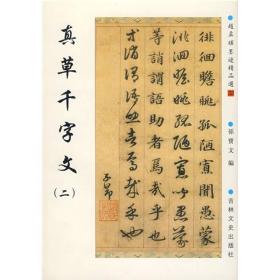 趙孟頫墨迹精品選
孫寶文 編
吉林文史出版社
徘徊瞻眺孤陋寡聞愚蒙
徘徊瞻眺孤陋寡聞愚蒙
等誚謂語助者焉哉乎也
等誚謂語助者焉哉乎也
子昂
真草千字文
(二)